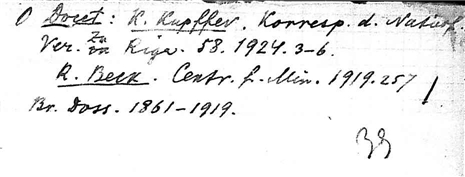 0 Docet: K. Kupffer. Korresp. d. Naturf.
Ver. zu Riga. 58. 1924. 3-6.
R. Beck. Centr. f. Min. 1919. 257
Br. Doss. 1861-1919.